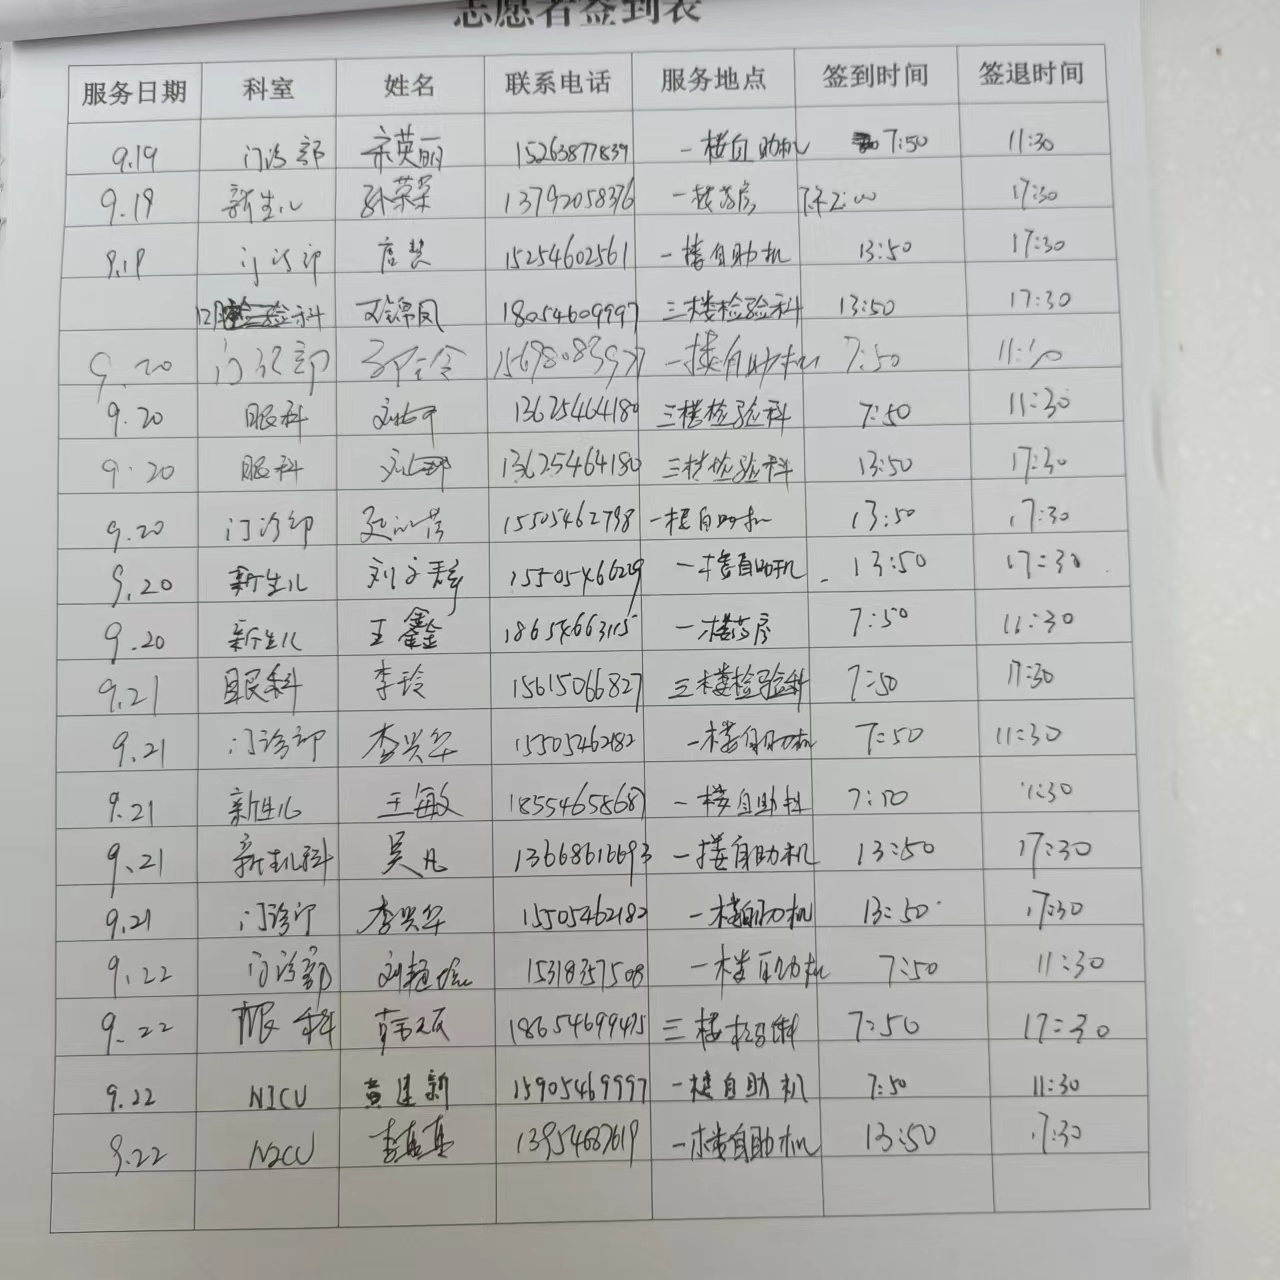 志愿者签到表
服务日期 科室 姓名 联系电话 服务地点 签到时间 签退时间
9.19 门诊部 宋英丽 15263877839 一楼自助机 7:50 11:30
9.19 新生儿 孙荣荣 13792058376 一楼药房 17:30
9.19 门诊部 唐慧 15254602561 一楼自助机 13:50 17:30
检验科 18054609997 三楼检验科 13:50 17:30
9.20 门诊部 15698083977 一楼自助机 7:50 11:30
9.20 眼科 13625464180 三楼检验科 7:50 11:30
9.20 眼科 13625464180 三楼检验科 13:50 17:30
9.20 门诊部 15505462798 一楼自助机 13:50 17:30
9.20 新生儿 一楼自助机 13:50 17:30
9.20 新生儿 王鑫 一楼药房 7:50 11:30
9.21 眼科 李玲 15615066827 三楼检验科 7:50 17:30
9.21 门诊部 李兴华 15505462182 一楼自助机 7:50 11:30
9.21 新生儿 王敏 18554658687 一楼自助机 7:50 11:30
9.21 新生儿科 吴凡 13668616693 一楼自助机 13:50 17:30
9.21 门诊部 李兴华 15505462182 一楼自助机 13:50 17:30
9.22 门诊部 15318357508 一楼自助机 7:50 11:30
9.22 眼科 18654699475 三楼检验科 7:50 17:30
9.22 NICU 黄建新 15905469997 一楼自助机 7:50 11:30
9.22 NICU 李真真 13954687619 一楼自助机 13:50 17:30